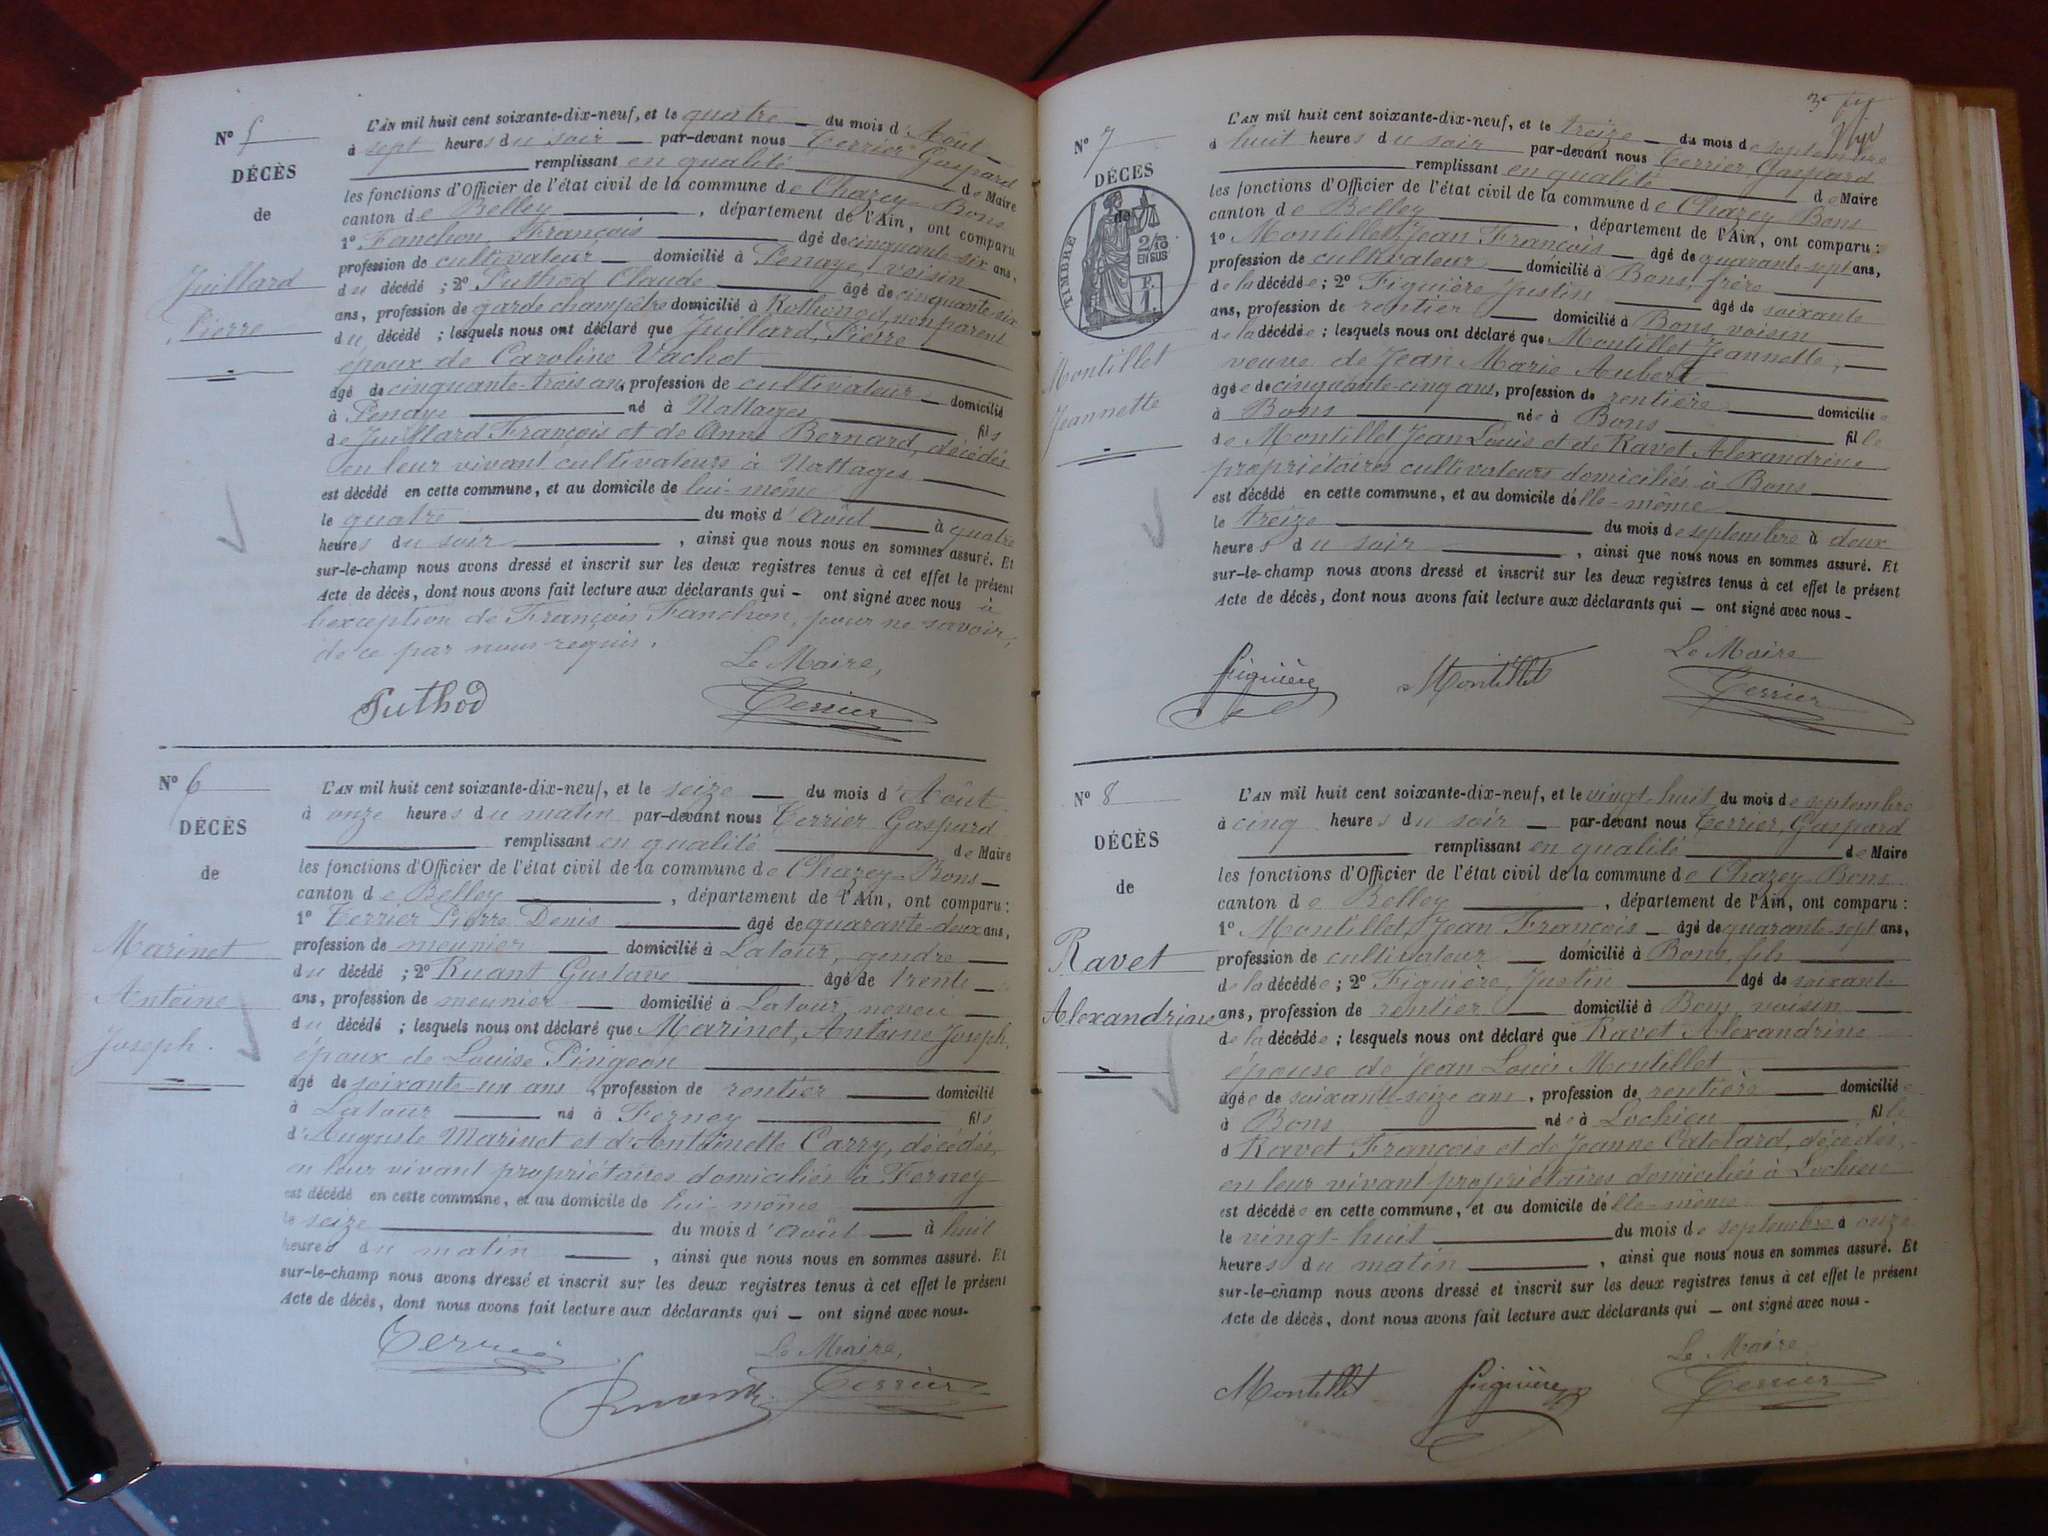 N° 5
DÉCÈS
de
Juillard
Pierre
L'AN mil huit cent soixante-dix-neuf, et le quatre du mois d'Août
à sept heures du soir par-devant nous Terrier Gaspard
remplissant en qualité de Maire
les fonctions d'Officier de l'état civil de la commune de Chazey-Bons
canton de Belley, département de l'Ain, ont comparu
1° Fanchon François âgé de cinquante-six ans,
profession de cultivateur domicilié à Penaye, voisin
du décédé ; 2° Puthod Claude âgé de cinquante-six
ans, profession de garde champêtre domicilié à Rothonod, non parent
du décédé ; lesquels nous ont déclaré que Juillard, Pierre
époux de Caroline Vachet
âgé de cinquante-trois ans, profession de cultivateur domicilié
à Penaye né à Nattages fils
de Juillard François et de Anne Bernard, décédés
en leur vivant cultivateurs à Nattages
est décédé en cette commune, et au domicile de lui-même
le quatre du mois d'Août à quatre
heures du soir, ainsi que nous nous en sommes assuré. Et
sur-le-champ nous avons dressé et inscrit sur les deux registres tenus à cet effet le présent
Acte de décès, dont nous avons fait lecture aux déclarants qui – ont signé avec nous à
l'exception de François Fanchon, pour ne savoir,
de ce par nous requis.
Le Maire,
Puthod
Terrier
N° 6
DÉCÈS
de
Marinet
Antoine
Joseph.
L'AN mil huit cent soixante-dix-neuf, et le seize du mois d'Août
à onze heures du matin par-devant nous Terrier Gaspard
remplissant en qualité de Maire
les fonctions d'Officier de l'état civil de la commune de Chazey-Bons
canton de Belley, département de l'Ain, ont comparu :
1° Terrier Pierre Denis âgé de quarante-deux ans,
profession de meunier domicilié à Latour, gendre
du décédé ; 2° Ruant Gustave âgé de trente
ans, profession de meunier domicilié à Latour, neveu
du décédé ; lesquels nous ont déclaré que Marinet, Antoine Joseph,
époux de Louise Pingeon
âgé de soixante-un ans, profession de rentier domicilié
à Latour né à Ferney fils
d'Auguste Marinet et d'Antoinette Carry, décédés,
en leur vivant propriétaires domiciliés à Ferney
est décédé en cette commune, et au domicile de lui-même
le seize du mois d'août à huit
heures du matin, ainsi que nous nous en sommes assuré. Et
sur-le-champ nous avons dressé et inscrit sur les deux registres tenus à cet effet le présent
Acte de décès, dont nous avons fait lecture aux déclarants qui – ont signé avec nous.
Terrier
Le Maire,
Ruant
Terrier
N° 7
DÉCÈS
de
TIMBRE
2/10
EN SUS
Montillet
Jeannette
L'AN mil huit cent soixante-dix-neuf, et le treize du mois de septembre
à huit heures du soir par-devant nous Terrier, Gaspard
remplissant en qualité de Maire
les fonctions d'Officier de l'état civil de la commune de Chazey Bons
canton de Belley, département de l'Ain, ont comparu :
1° Montillet, Jean François âgé de quarante-sept ans,
profession de cultivateur domicilié à Bons, frère
de la décédée ; 2° Figuière Justin âgé de soixante
ans, profession de rentier domicilié à Bons, voisin
de la décédée ; lesquels nous ont déclaré que Montillet Jeannette,
veuve de Jean Marie Aubert
âgée de cinquante-cinq ans, profession de rentière domiciliée
à Bons née à Bons fille
de Montillet Jean Louis et de Ravet Alexandrine
propriétaires cultivateurs domiciliés à Bons
est décédé en cette commune, et au domicile d'elle-même
le treize du mois de septembre à deux
heures du soir, ainsi que nous nous en sommes assuré. Et
sur-le-champ nous avons dressé et inscrit sur les deux registres tenus à cet effet le présent
Acte de décès, dont nous avons fait lecture aux déclarants qui – ont signé avec nous.
Le Maire
Figuière
Montillet
Terrier
N° 8
DÉCÈS
de
Ravet
Alexandrine
L'AN mil huit cent soixante-dix-neuf, et le vingt-huit du mois de septembre
à cinq heures du soir par-devant nous Terrier, Gaspard
remplissant en qualité de Maire
les fonctions d'Officier de l'état civil de la commune de Chazey-Bons
canton de Belley, département de l'Ain, ont comparu :
1° Montillet, Jean François âgé de quarante-sept ans,
profession de cultivateur domicilié à Bons, fils
de la décédée ; 2° Figuière, Justin âgé de soixante
ans, profession de rentier domicilié à Bons, voisin
de la décédée ; lesquels nous ont déclaré que Ravet Alexandrine
épouse de Jean Louis Montillet
âgée de soixante-seize ans, profession de rentière domiciliée
à Bons née à Lochieu fille
d Ravet François et de Jeanne Catelard, décédés,
en leur vivant propriétaires domiciliés à Lochieu
est décédée en cette commune, et au domicile d'elle-même
le vingt-huit du mois de septembre à onze
heures du matin, ainsi que nous nous en sommes assuré. Et
sur-le-champ nous avons dressé et inscrit sur les deux registres tenus à cet effet le présent
Acte de décès, dont nous avons fait lecture aux déclarants qui – ont signé avec nous.
Le Maire
Montillet
Figuière
Terrier